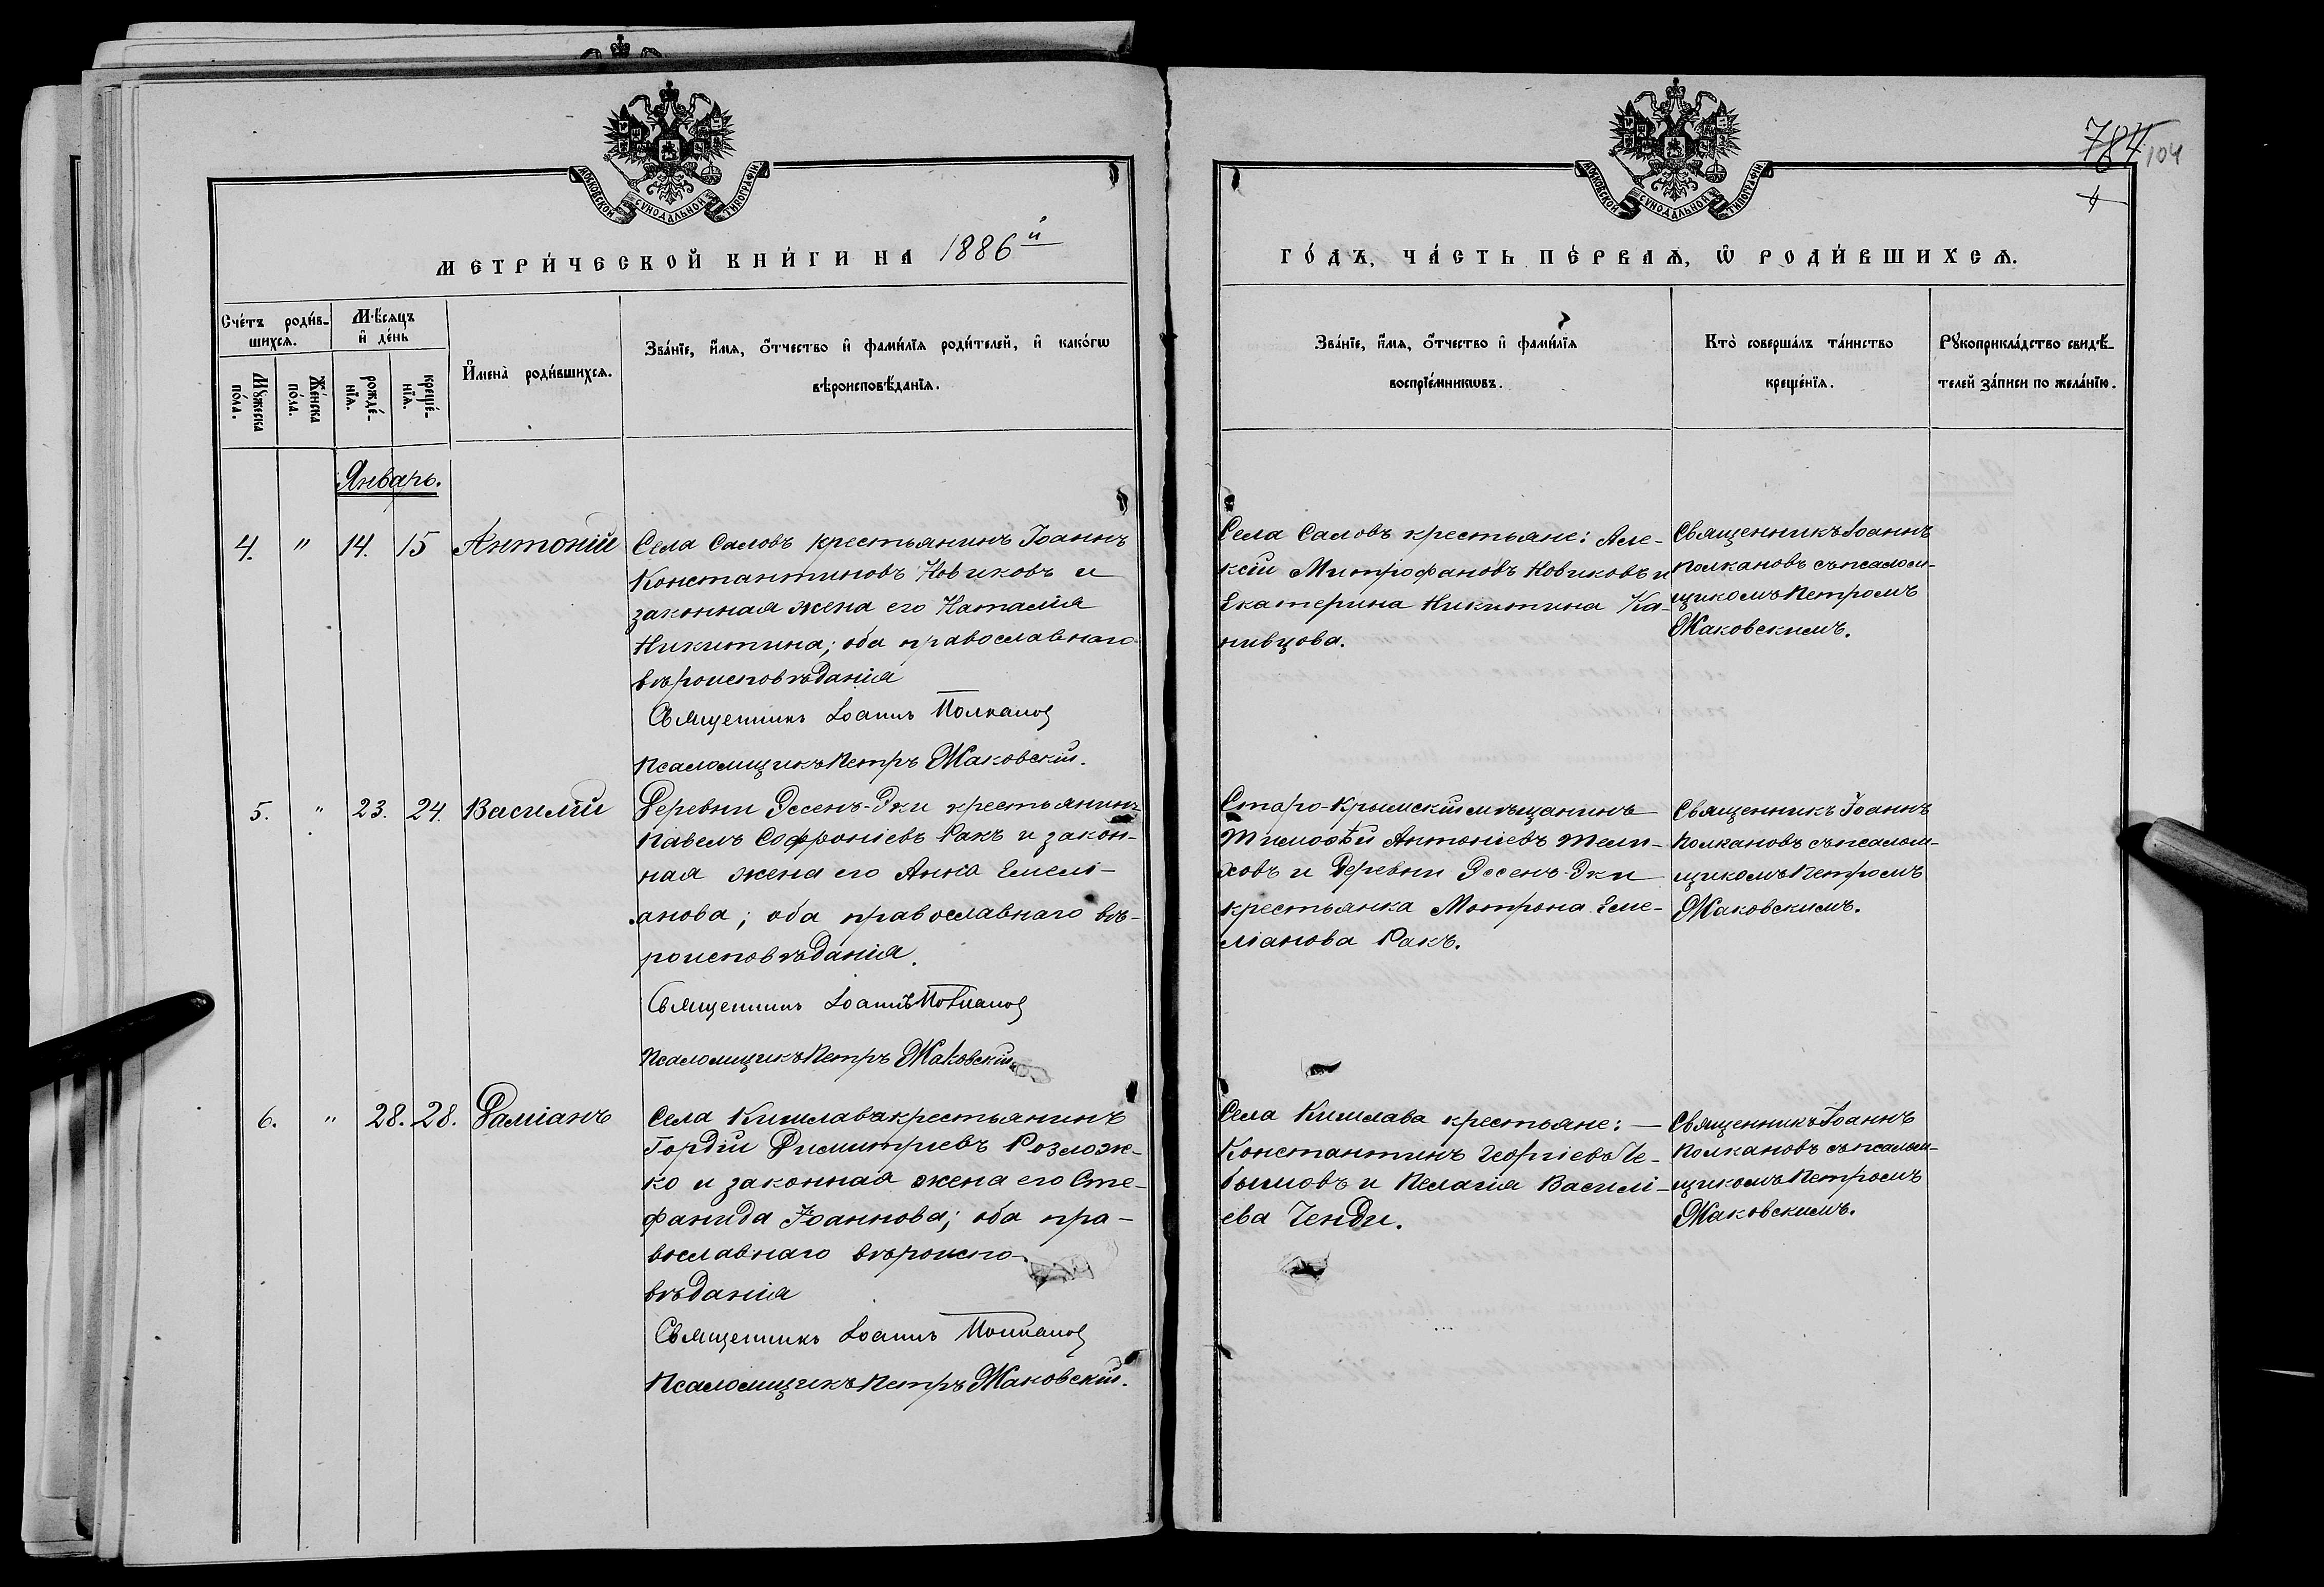 МОСКОВСКОЙ СѴНОДАЛЬНОЙ ТИПОГРАФІИ
МЕТРИ́ЧЕСКОЙ КНИ́ГИ НА 1886й
Сче́тъ роди́в-
шихсѧ.
Мѣ́сѧцъ
и҆ де́нь
Мꙋ́жеска
по́ла.
Же́нска
по́ла.
рожде́-
нїѧ.
креще́-
нїѧ.
И҆мена̀ роди́вшихсѧ.
Зва́нїе, и҆́мѧ, ѻ҆́тчество и҆ фами́лїѧ роди́телей, и҆ како́гѡ
вѣроисповѣ́данїѧ.
Январь.
4. " 14. 15 Антоній
Села Саловъ крестьянинъ Іоаннъ
Константиновъ Новиковъ и
законная жена его Наталія
Никитина; оба православнаго
вѣроисповѣданія
Священникъ Іоаннъ Полканов
Псаломщикъ Петръ Жаковскій.
5. " 23. 24. Василій
Деревни Эссенъ-Эки крестьянинъ
Павелъ Софроніевъ Ракъ и закон-
ная жена его Анна Емелі-
анова; оба православнаго вѣ-
роисповѣданія.
Священникъ Іоаннъ Полканов
Псаломщикъ Петръ Жаковскій.
6. " 28. 28. Даміанъ
Села Кишлава крестьянинъ
Гордій Димитріевъ Розлож-
ко и законная жена его Сте-
фанида Іоаннова; оба пра-
вославнаго вѣроиспо-
вѣданія
Священникъ Іоаннъ Полканов
Псаломщикъ Петръ Жаковскій.
784 104
МОСКОВСКОЙ СѴНОДАЛЬНОЙ ТИПОГРАФІИ
ГО́ДЪ, ЧА́СТЬ ПЕ́РВАѦ, Ѡ҆ РОДИ́ВШИХСѦ.
Зва́нїе, и҆́мѧ, ѻ҆́тчество и҆ фами́лїѧ
воспрїе́мникѡвъ.
Кто̀ соверша́лъ та́инство
креще́нїѧ.
Рꙋкоприкла́дство свидѣ́-
телей за́писи по жела́нїю.
Села Саловъ крестьяне: Але-
ксій Митрофановъ Новиковъ и
Екатерина Никитина Ка-
нивцова.
Священникъ Іоаннъ
Полкановъ съ псалом-
щикомъ Петромъ
Жаковскимъ.
Старо-Крымскій мѣщанинъ
Тимоѳѣй Антоніевъ Мели-
ховъ и Деревни Эссенъ-Эки
крестьянка Мотрона Еме-
ліанова Ракъ.
Священникъ Іоаннъ
Полкановъ съ псалом-
щикомъ Петромъ
Жаковскимъ.
Села Кишлава крестьяне: —
Константинъ Георгіевъ Че-
бышовъ и Пелагія Василі-
ева Ченди.
Священникъ Іоаннъ
Полкановъ съ псалом-
щикомъ Петромъ
Жаковскимъ.